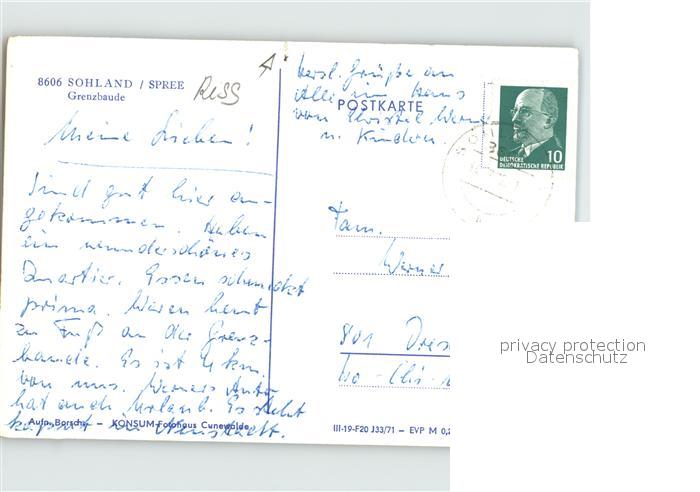 8606 SOHLAND / SPREE
Grenzbaude
RESS
Meine Lieben!
Sind gut hier an-
gekommen. Haben
ein wunderschönes
Quartier. Essen schmeckt
prima. Waren heut
zu Fuß an der Grenz-
baude. Es ist 4 km.
von uns. Werners Auto
hat auch Urlaub. Es steht
kaputt in Neustadt.
Aufn. Borsche - KONSUM-Fotohaus Cunewalde
herzl. Grüße an
Alle im Haus
POSTKARTE
von Christel Werner
u. Kindern.
10
DEUTSCHE
DEMOKRATISCHE REPUBLIK
Fam.
Werner
801 Dres
III-19-F20 J33/71 - EVP M 0,2
privacy protection
Datenschutz